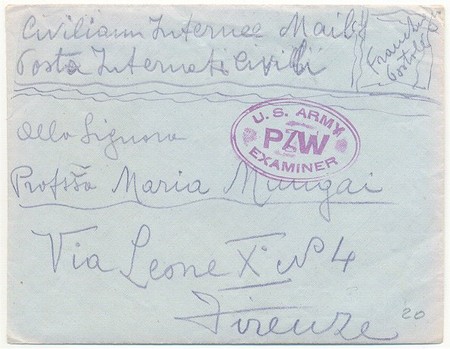 Civiliann Internee Mail
Posta Internati Civili
Franchigia
Postale
U.S. ARMY
PZW
EXAMINER
Alla Signora
Profssa Maria Mungai
Via Leone X° No 4
Firenze
20